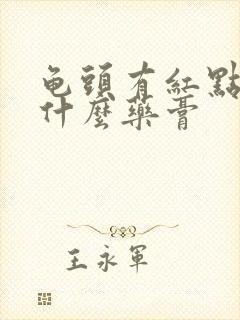 龟頭有紅點
什麼藥膏
王永軍